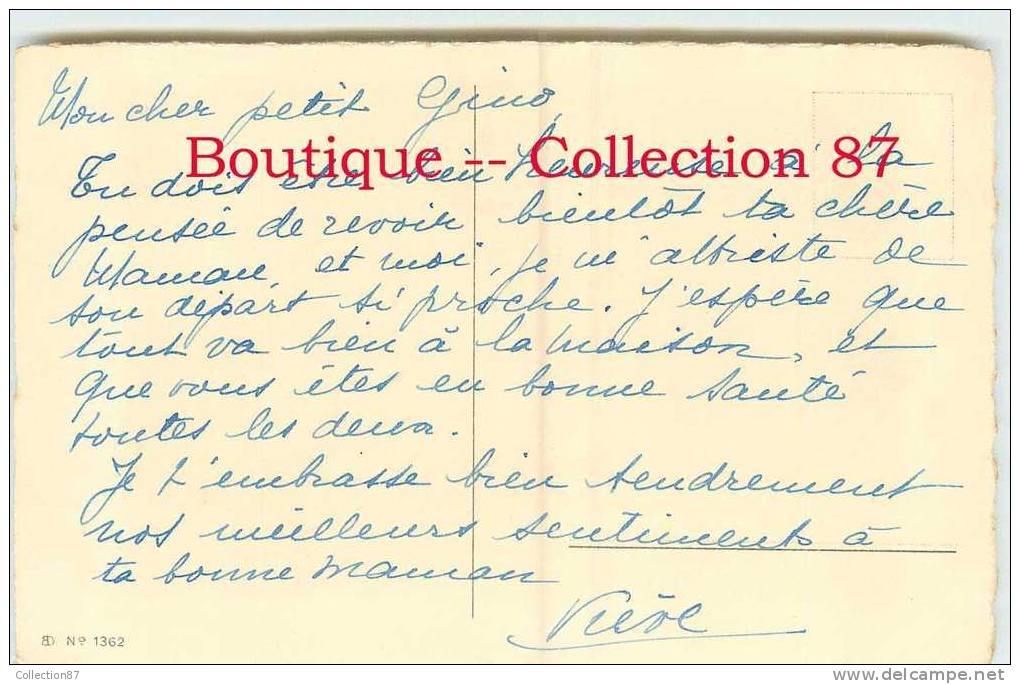 Mon cher petit Gino,
Boutique -- Collection 87
Tu dois être bien heureuse à la
pensée de revoir bientôt ta chère
Maman, et moi, je m'attriste de
son départ si proche. J'espère que
tout va bien à la maison, et
que vous êtes en bonne santé
toutes les deux.
Je t'embrasse bien tendrement
nos meilleurs sentiments à
ta bonne maman
No 1362
Collection87
www.delcampe.net